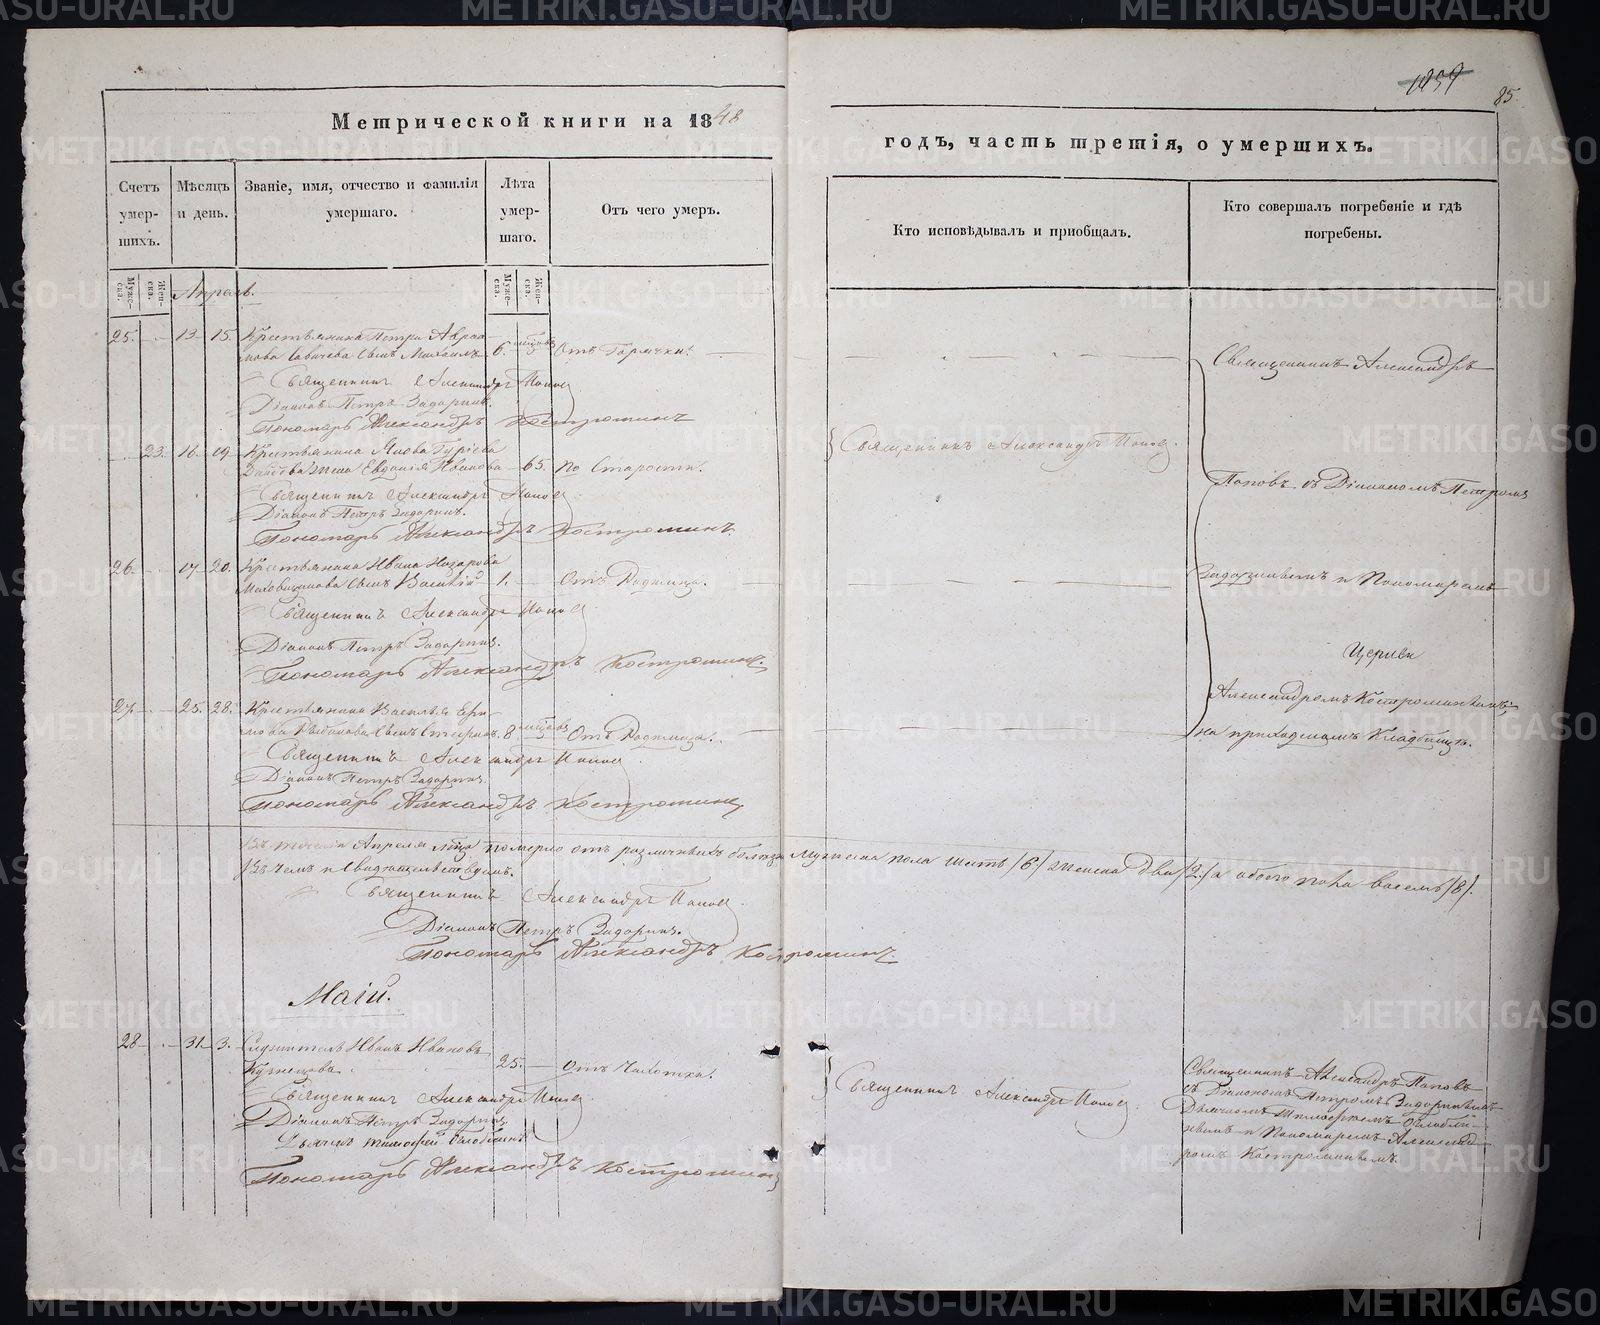 1859
85.
Метрической книги на 1848
годъ, часть третія, о умершихъ.
Счетъ умер-шихъ.
Мѣсяцъ и день.
Званіе, имя, отчество и фамилія умершаго.
Лѣта умер-шаго.
Отъ чего умеръ.
Кто исповѣдывалъ и приобщалъ.
Кто совершалъ погребеніе и гдѣ погребены.
Муже-ска.
Жен-ска.
Муже-ска.
Жен-ска.
Апрель.
25. 13. 15. Крестьянина Петра Авраа-
мова сынъ Михаилъ 6. Отъ Горячки.
Священникъ Александръ Поповъ
Діаконъ Петръ Задоринъ.
Пономарь Александръ Костроминъ
23. 16. 19. Крестьянина Якова Гуріева
жена Евдокія Иванова 65. По Старости.
Священникъ Александръ Поповъ
Діаконъ Петръ Задоринъ.
Пономарь Александръ Костроминъ.
26. 17. 20. Крестьянина Ивана Назарова
сынъ Василій 1. Отъ Родимца.
Священникъ Александръ Поповъ
Діаконъ Петръ Задоринъ.
Пономарь Александръ Костроминъ.
27. 25. 28. Крестьянина Василья Ефи-
мова сынъ 8 Отъ Родимца.
Священникъ Александръ Поповъ
Діаконъ Петръ Задоринъ
Пономарь Александръ Костроминъ
Священникъ Александръ Поповъ.
Священникъ Александръ
Поповъ съ Діакономъ Петромъ
Задоринымъ и Пономаремъ
Церкви
Александромъ Костроминымъ,
на приходскомъ Кладбищѣ.
Въ теченіи Апреля м-ца померло отъ различныхъ болѣзней мужеска пола шесть /6/ женска два /2/ а обоего пола восемь /8/.
Въ чемъ и свидѣтельствуемъ.
Священникъ Александръ Поповъ
Діаконъ Петръ Задоринъ.
Пономарь Александръ Костроминъ.
Маій.
28. 31. 3. Служитель Иванъ Ивановъ
Кузнецовъ 25. Отъ Чахотки.
Священникъ Александръ Поповъ
Діаконъ Петръ Задоринъ
Дьячекъ Тимофей
Пономарь Александръ Костроминъ
Священникъ Александръ Поповъ
Священникъ Александръ Поповъ
съ Діакономъ Петромъ Задоринымъ
Дьячкомъ Тимофеемъ
и Пономаремъ Александ-
ромъ Костроминымъ.
METRIKI.GASO-URAL.RU